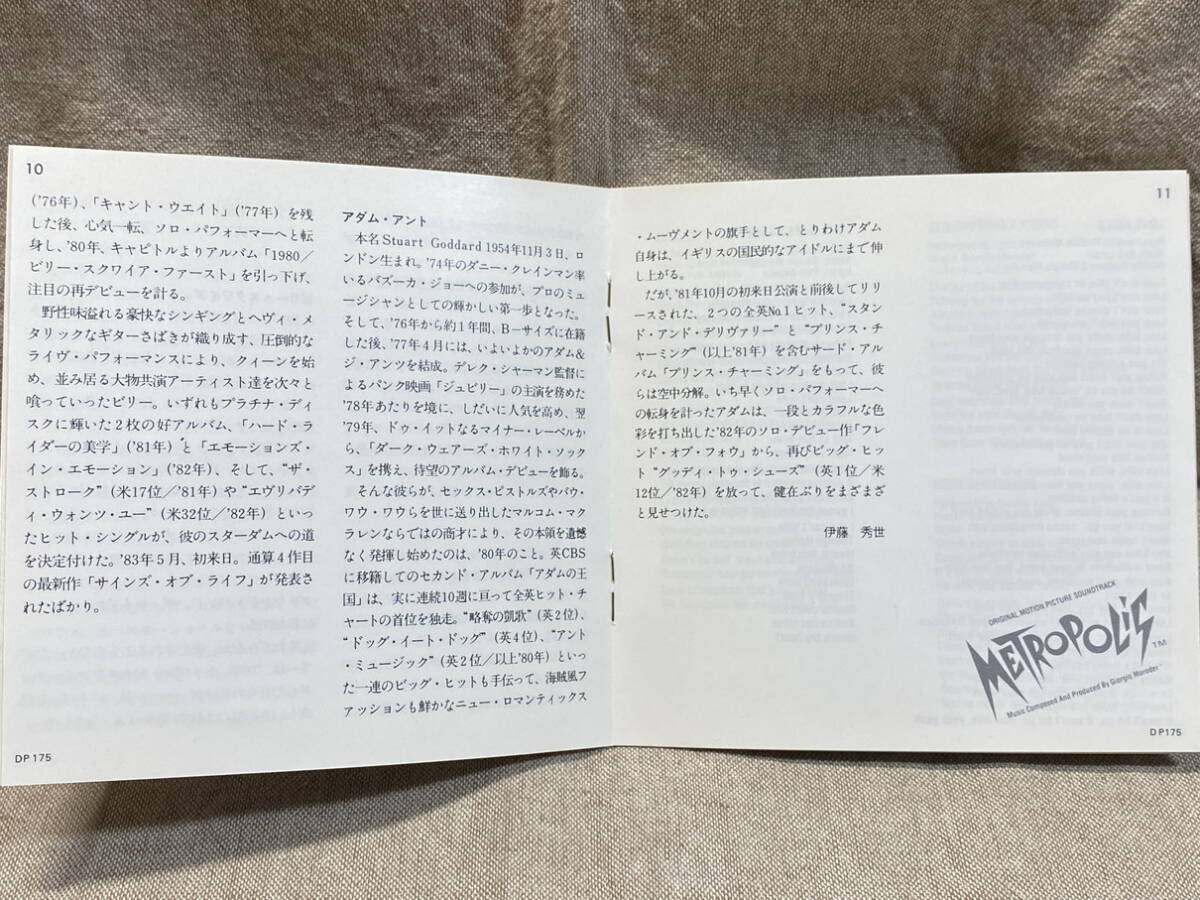 10
('76年)、「キャント・ウエイト」('77年) を残
した後、心気一転、ソロ・パフォーマーへと転
身し、'80年、キャピトルよりアルバム「1980／
ビリー・スクワイア・ファースト」を引っ下げ、
注目の再デビューを計る。
野性味溢れる豪快なシンギングとヘヴィ・メ
タリックなギターさばきが織り成す、圧倒的な
ライヴ・パフォーマンスにより、クィーンを始
め、並み居る大物共演アーティスト達を次々と
喰っていったビリー。いずれもプラチナ・ディ
スクに輝いた2枚の好アルバム、「ハード・ラ
イダーの美学」('81年) と「エモーションズ・
イン・エモーション」('82年)、そして、“ザ・
ストローク” (米17位／'81年) や “エヴリバデ
ィ・ウォンツ・ユー” (米32位／'82年) といっ
たヒット・シングルが、彼のスターダムへの道
を決定付けた。'83年5月、初来日。通算4作目
の最新作「サインズ・オブ・ライフ」が発表さ
れたばかり。
DP175
アダム・アント
本名Stuart Goddard 1954年11月3日、ロ
ンドン生まれ。'74年のダニー・クレインマン率
いるバズーカ・ジョーへの参加が、プロのミュ
ージシャンとしての輝かしい第一歩となった。
そして、'76年から約1年間、B－サイズに在籍
した後、'77年4月には、いよいよかのアダム&
ジ・アンツを結成。デレク・シャーマン監督に
よるパンク映画「ジュビリー」の主演を務めた
'78年あたりを境に、しだいに人気を高め、翌
'79年、ドゥ・イットなるマイナー・レーベルか
ら、「ダーク・ウェアーズ・ホワイト・ソック
ス」を携え、待望のアルバム・デビューを飾る。
そんな彼らが、セックス・ピストルズやバウ・
ワウ・ワウらを世に送り出したマルコム・マク
ラレンならではの商才により、その本領を遺憾
なく発揮し始めたのは、'80年のこと。英CBS
に移籍してのセカンド・アルバム「アダムの王
国」は、実に連続10週に亘って全英ヒット・チ
ャートの首位を独走。“略奪の凱歌” (英2位)、
“ドッグ・イート・ドッグ” (英4位)、“アント
・ミュージック” (英2位／以上'80年) といっ
た一連のビッグ・ヒットも手伝って、海賊風フ
ァッションも鮮かなニュー・ロマンティックス
11
・ムーヴメントの旗手として、とりわけアダム
自身は、イギリスの国民的なアイドルにまで伸
し上がる。
だが、'81年10月の初来日公演と前後してリリ
ースされた、2つの全英No.1ヒット、“スタン
ド・アンド・デリヴァリー” と “プリンス・チ
ャーミング” (以上'81年) を含むサード・アル
バム「プリンス・チャーミング」をもって、彼
らは空中分解。いち早くソロ・パフォーマーへ
の転身を計ったアダムは、一段とカラフルな色
彩を打ち出した'82年のソロ・デビュー作「フレ
ンド・オブ・フォウ」から、再びビッグ・ヒッ
ト “グッディ・トゥ・シューズ” (英1位／米
12位／'82年) を放って、健在ぶりをまざまざ
と見せつけた。
伊藤　秀世
ORIGINAL MOTION PICTURE SOUNDTRACK
METROPOLIS TM
Music Composed And Produced By Giorgio Moroder
DP175